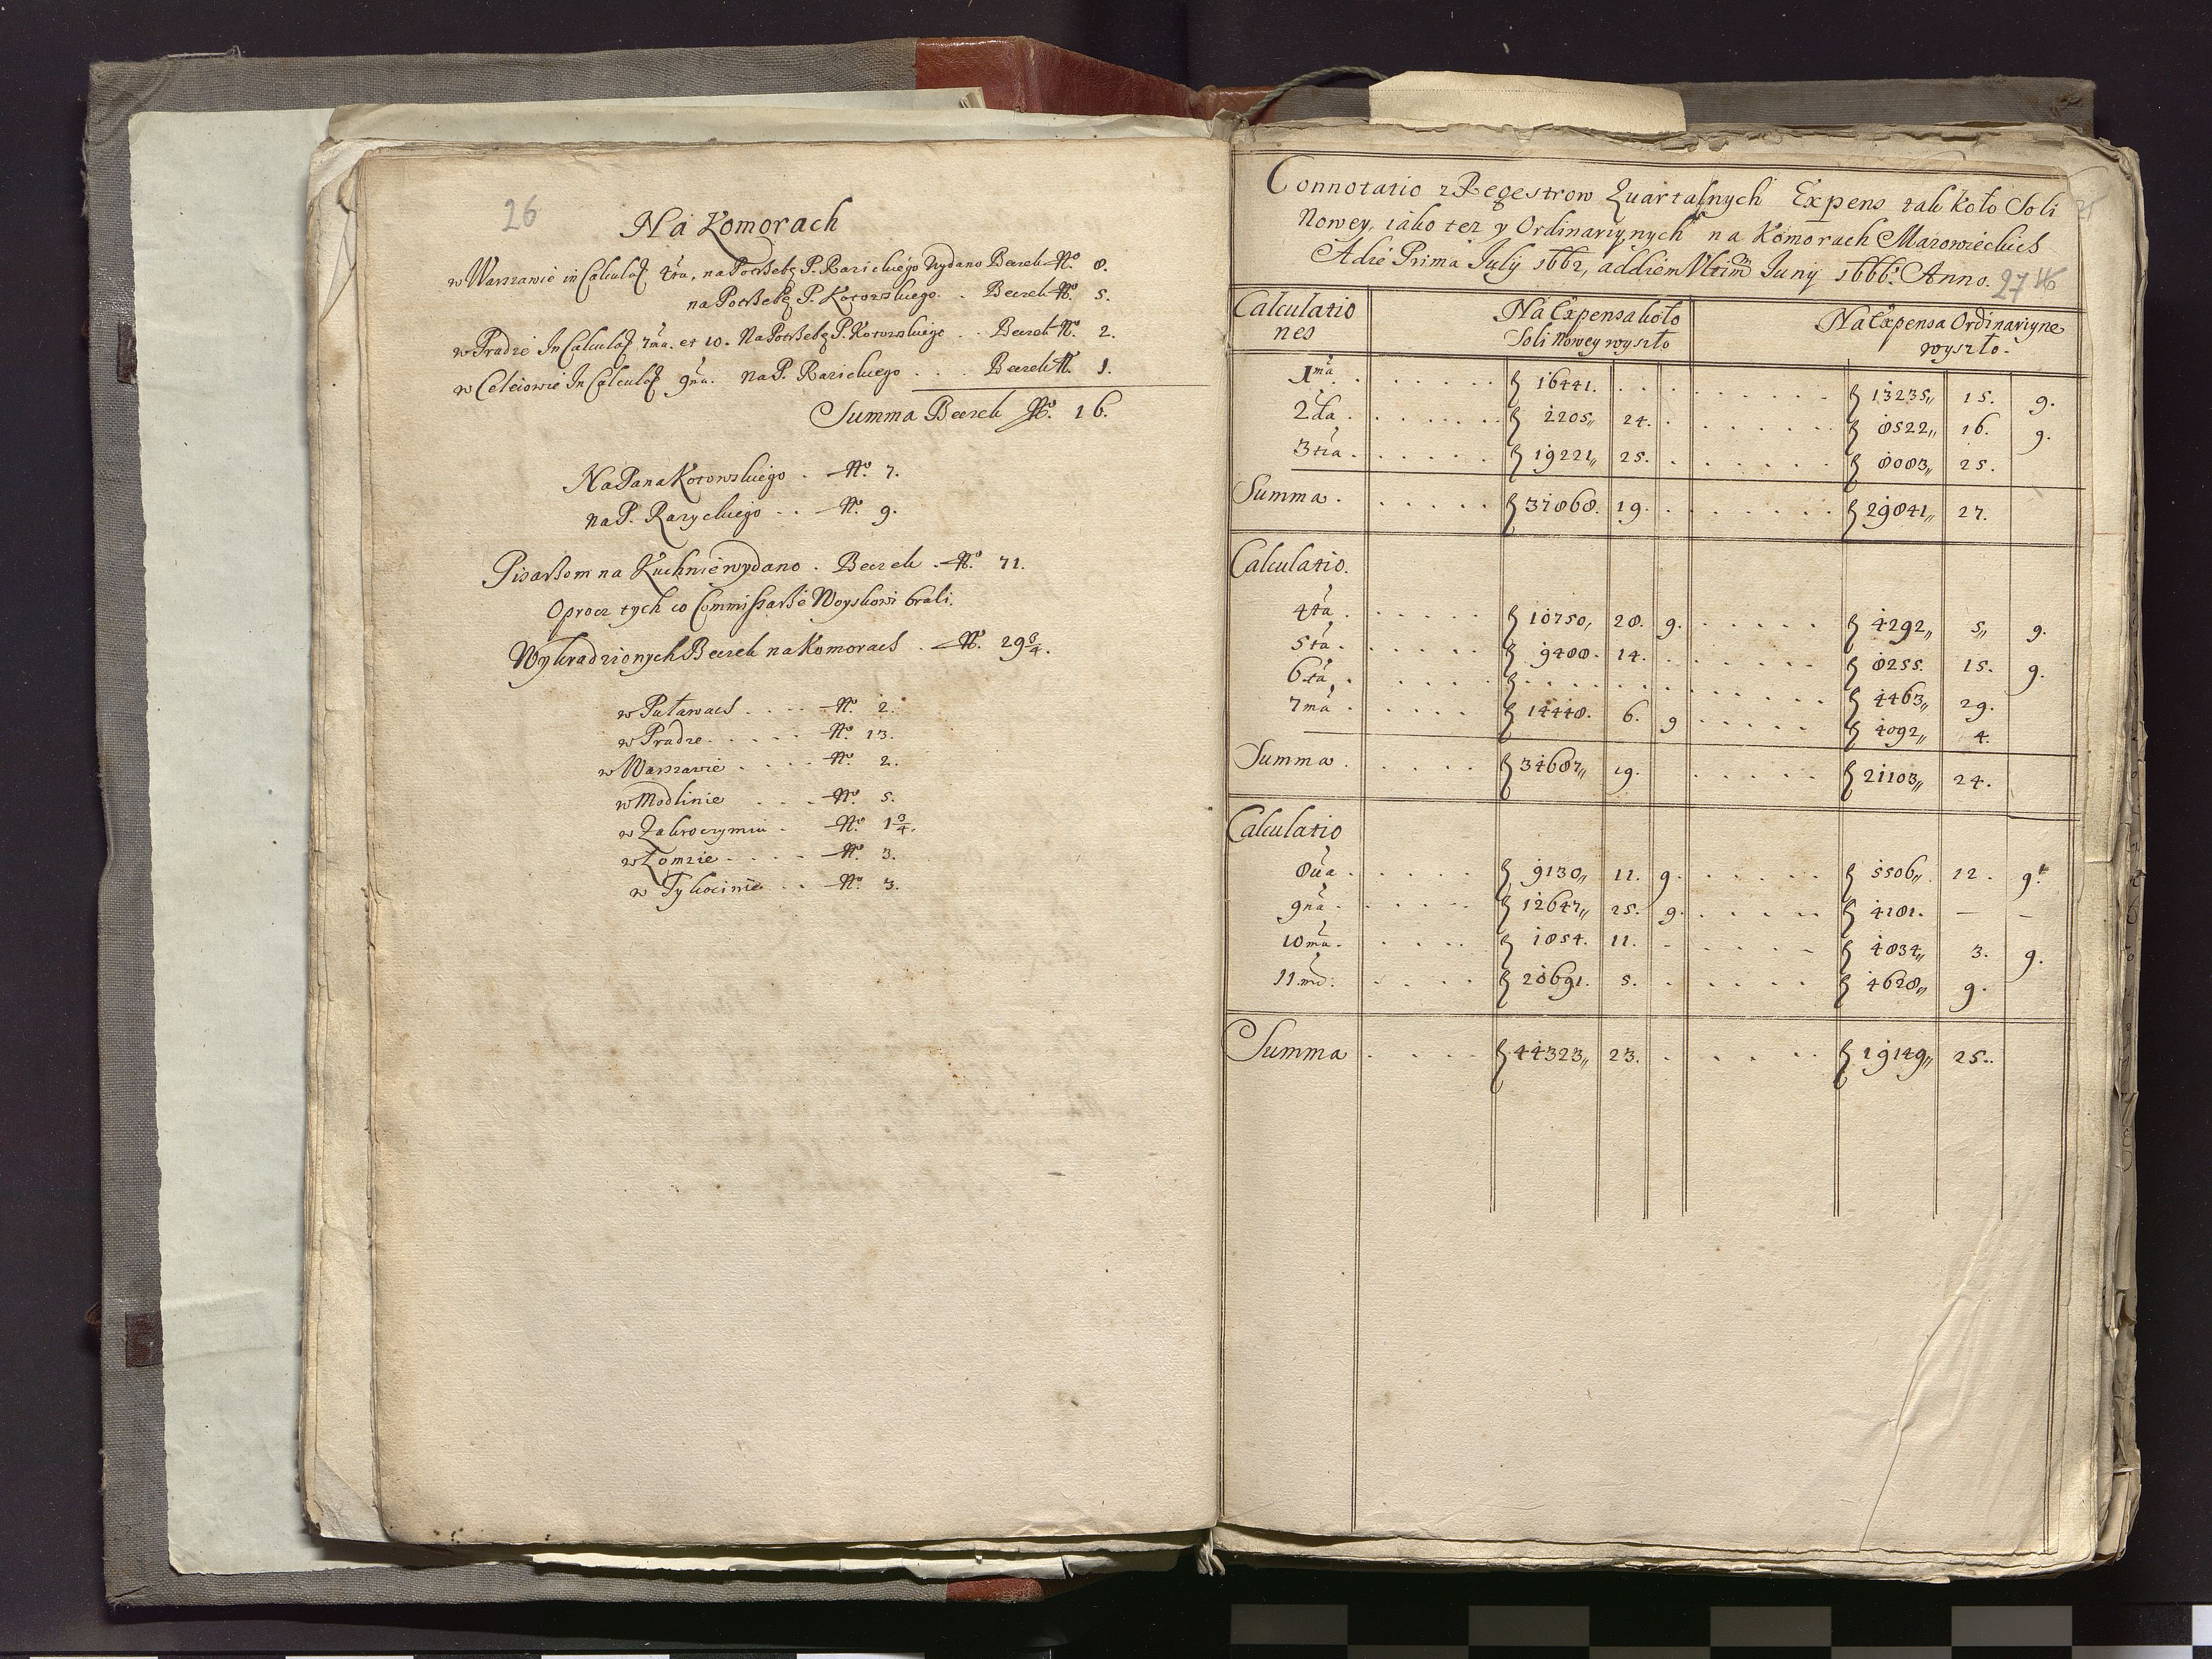 26
Na Komorach
w Warszawie in Calculaõ 4ta, na Potrzebę P. Razickiego Wydano Beczek No. 8.
na Potrzebę P. Kotowskiego . Beczek No. 5.
w Pradze In Calculaõ 7ma. et 10. Na Potrzebę P. Kotowskiego . Beczek No. 2.
w Celeiowie In Calculaõ 9na. na P. Razickiego . . . Beczek No. 1.
Summa Beczek No. 16.
Na Pana Kotowskiego . No. 7.
na P. Razyckiego . . No. 9.
Pisarzom na Kuchnie wydano . Beczek . No. 71.
Oprocz tych co Commissarze Woyskowi brali.
Wykradzionych Beczek na Komorach . No. 29 3/4.
w Puławach . . . . No. 2.
w Pradze . . . . . No. 13.
w Warszawie . . . . No. 2.
w Modlinie . . . No. 5.
w Zakroczymiu . No. 1 3/4.
w Łomzie . . . . No. 3.
w Tykocinie . . No. 3.
Connotatio z Regestrow Quartalnych Expens tak koło Soli
Nowey, iako tez y Ordinaryinych na Komorach Mazowieckich
A die Prima July 1662, ad diem Vltimã Juny 1666. Anno. 27
Calculationes Na Expensa koło Soli Nowey wyszło Na Expensa Ordinaryine wyszło.
1ma . . f 16441. . . f 13235,, 15. 9.
2da . . f 2205,, 24. . f 8522,, 16. 9.
3tia . . f 19221,, 25. . f 8083,, 25.
Summa . . f 37868. 19. . f 29841,, 27.
Calculatio.
4ta . . f 10750, 28. 9. . f 4292,, 5,, 9.
5ta . . f 9488. 14. . f 8255. 15. 9.
6ta . . f . . . f 4463,, 29.
7ma . . f 14448. 6. 9 . f 4092,, 4.
Summa . . f 34687,, 19. . f 21103,, 24.
Calculatio
8ua . . f 9130,, 11. 9. . f 5506,, 12. 9.
9na . . f 12647,, 25. 9. . f 4181. — —
10ma . . f 1854. 11. - . f 4834,, 3. 9.
11md . . f 20691. 5. . f 4628,, 9.
Summa . . f 44323,, 23. . f 19149,, 25.